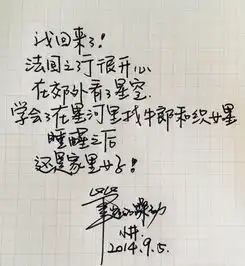 我回来了!
法国之行很开心
在郊外看了星空.
学会了在星河里找牛郎和织女星
睡醒之后
还是家里好!
2014.9.5.